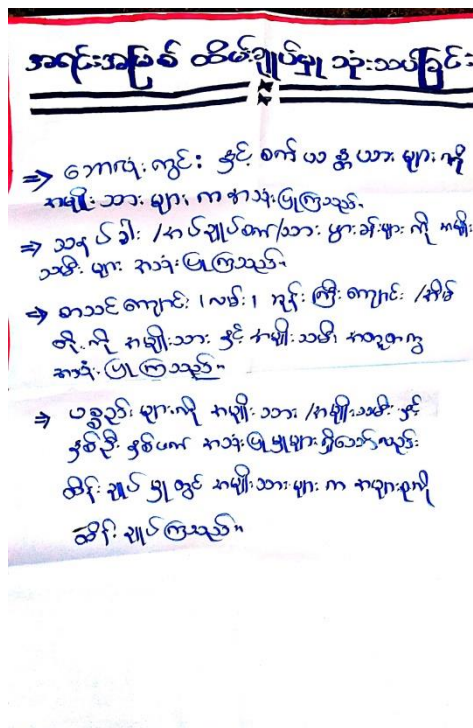 အရင်းအမြစ် ထိမ်းချုပ်မှု သုံးသပ်ခြင်း
⇒ ဘောလုံးကွင်း နှင့် စက် ယန္တယား များ ကို
အမျိုးသား များ က အသုံးပြုကြသည်။
⇒ သနပ်ခါး /အပ်ချုပ်စက်/သား ဖွားခန်းများ ကို အမျိုး
သမီး များ အသုံးပြုကြသည်။
⇒ စာသင်ကျောင်း / လမ်း / ဘုန်းကြီးကျောင်း /အိမ်
တို့ ကို အမျိုးသား နှင့် အမျိုးသမီး အတူတကွ
အသုံးပြုကြသည်။
⇒ ပစ္စည်းများကို အမျိုးသား /အမျိုးသမီး နှင့်
နှစ်ဦး နှစ်ဖက် အသုံးပြုမှုများ ရှိသော်လည်း
ထိန်းချုပ်မှုတွင် အမျိုးသားများ က အများစုကို
ထိန်းချုပ်ကြသည်။